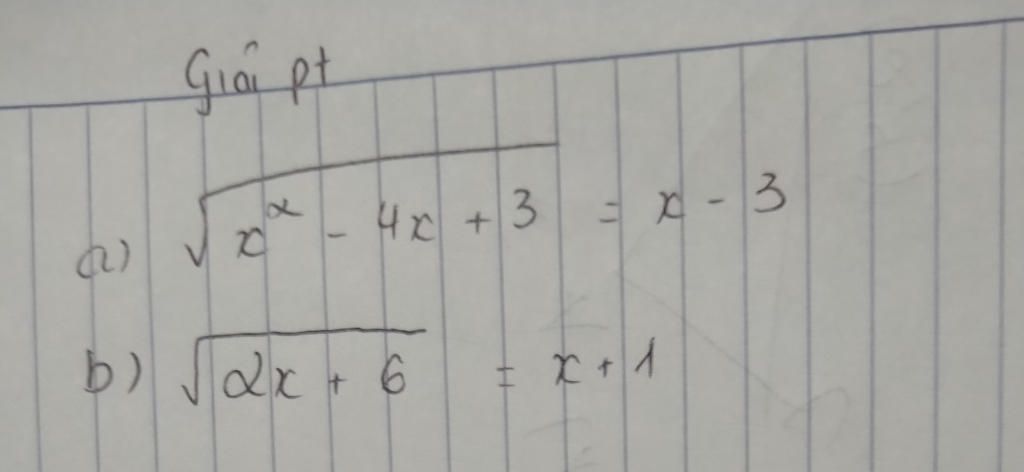 Giải pt
a) √(x² - 4x + 3) = x - 3
b) √(2x + 6) = x + 1